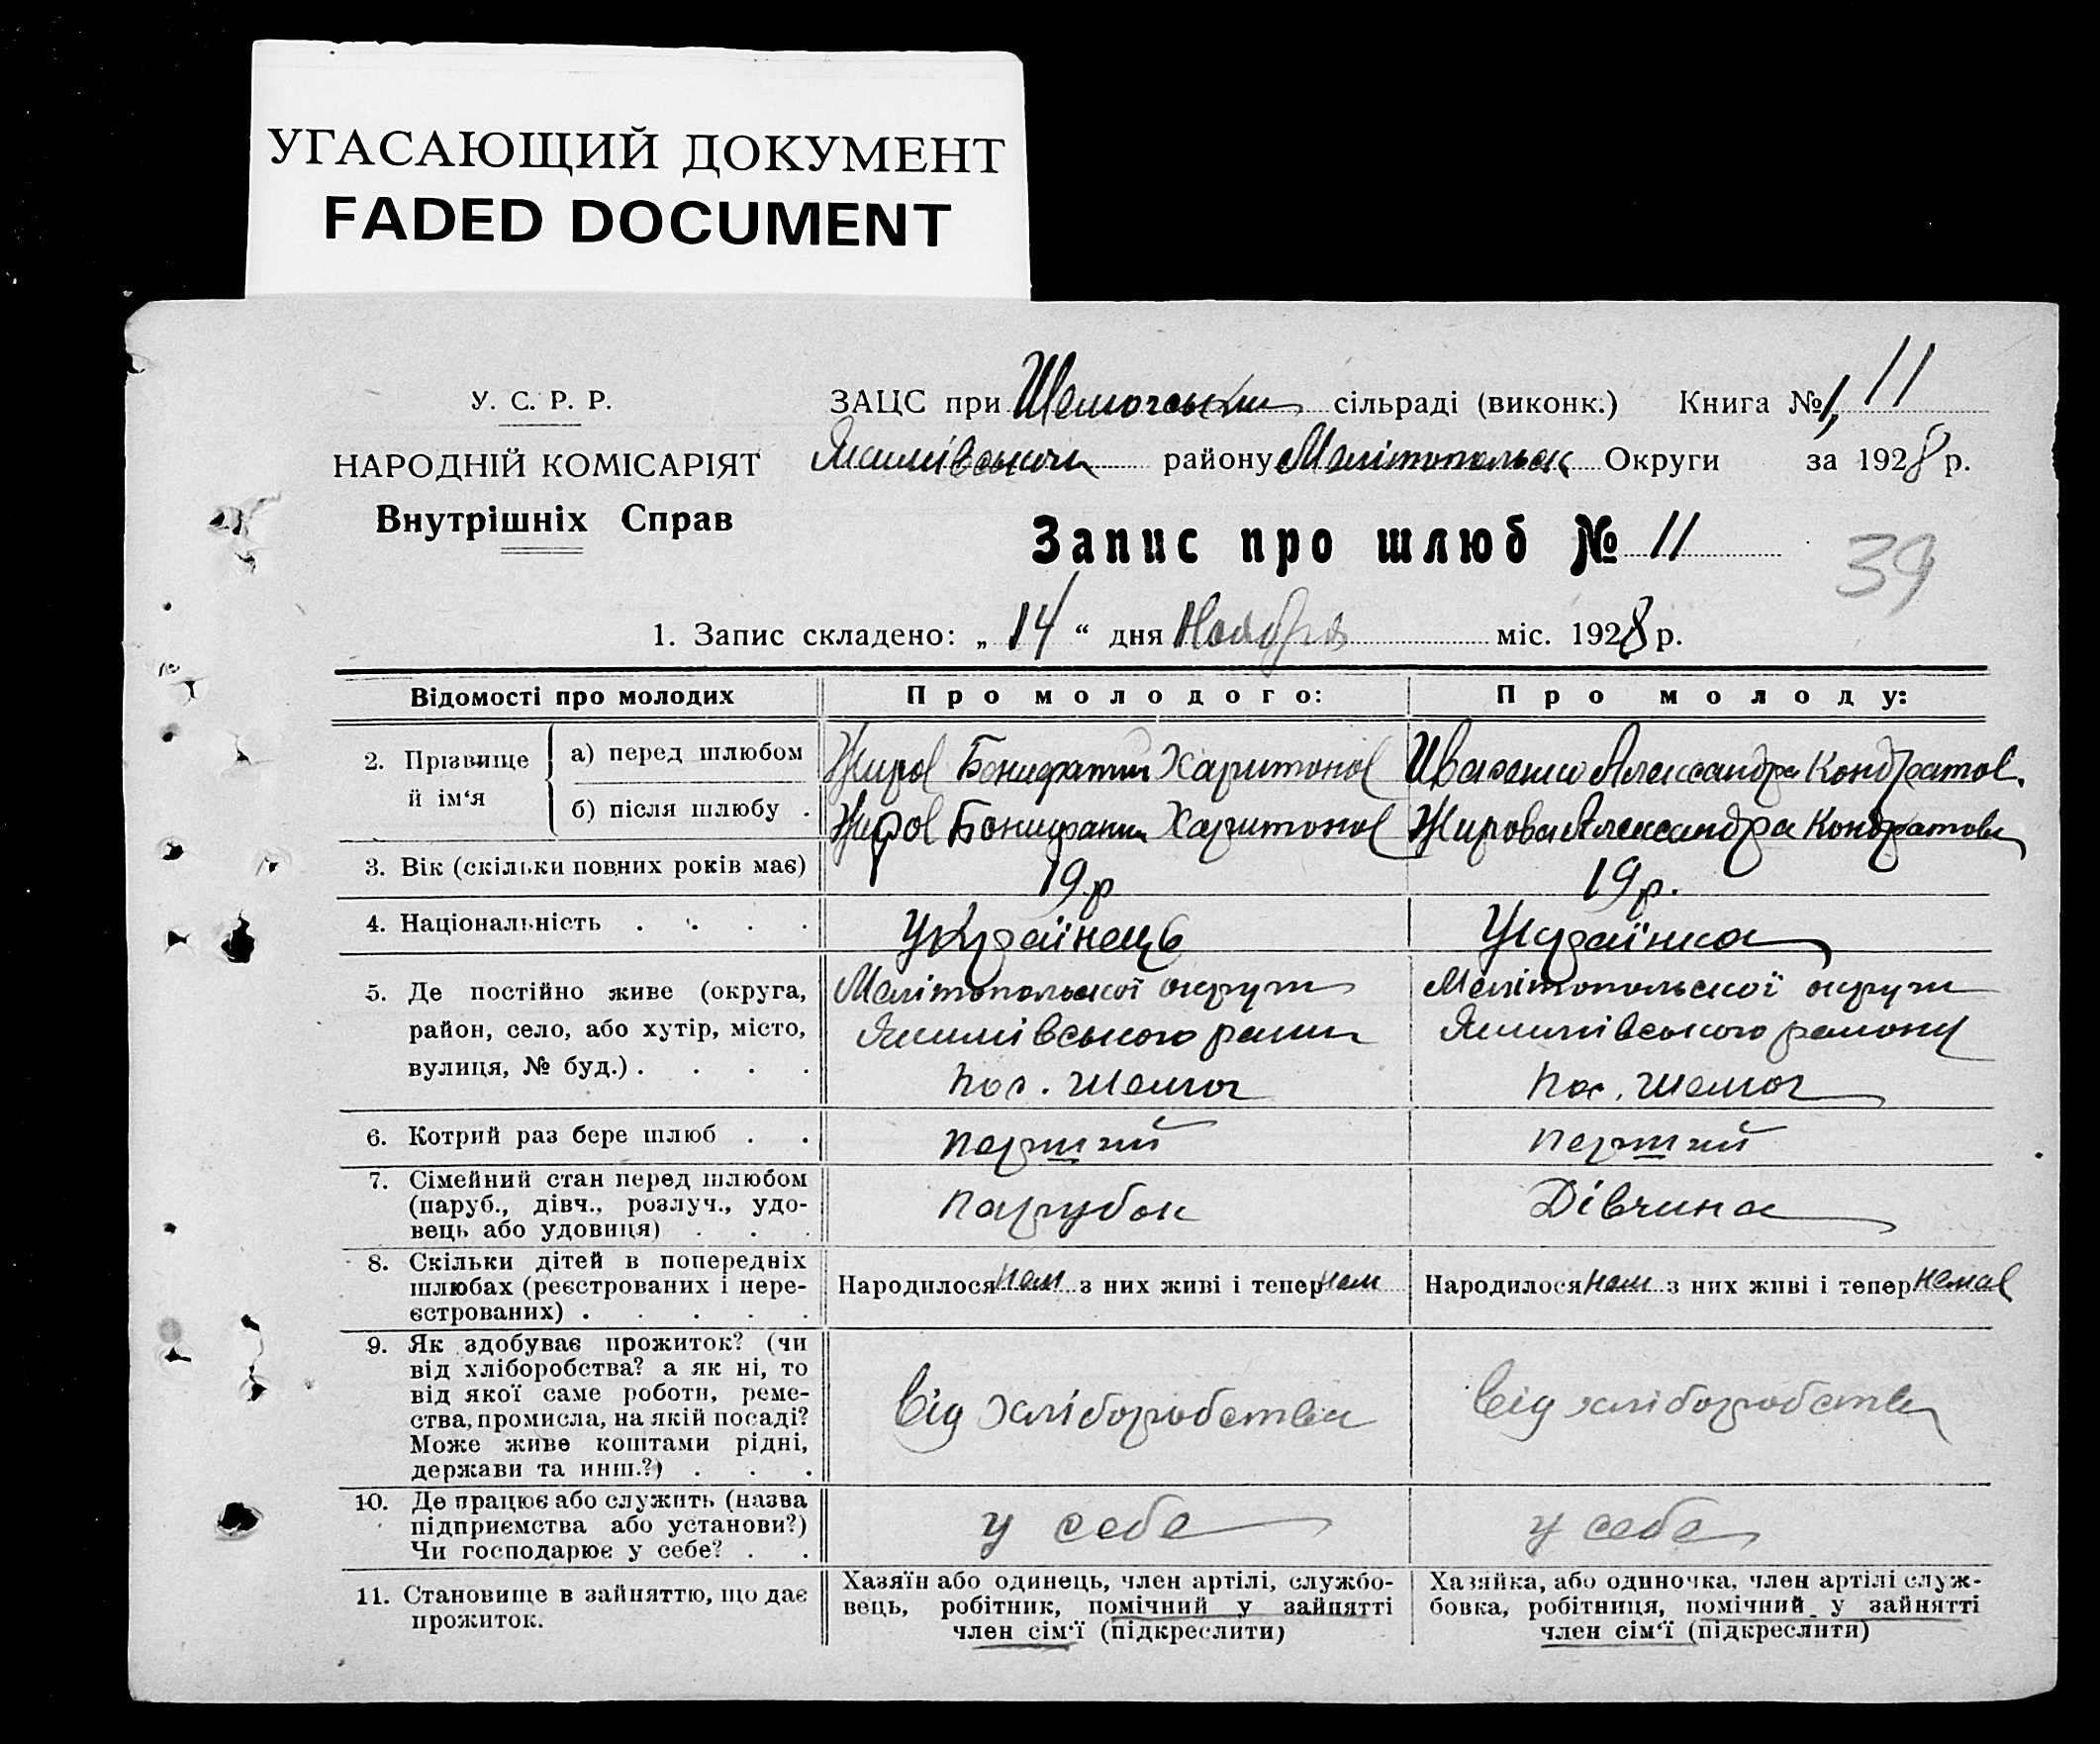 УГАСАЮЩИЙ ДОКУМЕНТ
FADED DOCUMENT
У. С. Р. Р.
НАРОДНІЙ КОМІСАРІЯТ
Внутрішніх Справ
ЗАЦС при сільраді (виконк.) Книга № 1, 11
району Мелітопольськ Округи за 1928 р.
Запис про шлюб № 11
39
1. Запис складено: „ 14 “ дня Ноября міс. 1928 р.
Відомості про молодих
Про молодого:
Про молоду:
2. Прізвище й ім‘я
а) перед шлюбом
Жиров Бонифатий Харитонов
Александра Кондратов.
б) після шлюбу .
Жиров Бонифатий Харитонов
Жирова Александра Кондратова
3. Вік (скільки повних років має)
19 р
19 р.
4. Національність . . . .
Українець
Українка
5. Де постійно живе (округа,
район, село, або хутір, місто,
вулиця, № буд.) . . . .
Мелітопольської округи
Якимівського
Пос.
Мелітопольської округи
Якимівського району
Пос.
6. Котрий раз бере шлюб . .
перший
перший
7. Сімейний стан перед шлюбом
(паруб., дівч., розлуч., удо-
вець або удовиця) . . .
парубок
Дівчина
8. Скільки дітей в попередніх
шлюбах (реєстрованих і нере-
єстрованих) . . . . .
Народилося нем з них живі і тепер нем
Народилося нем з них живі і тепер немає
9. Як здобуває прожиток? (чи
від хліборобства? а як ні, то
від якої саме роботи, реме-
ства, промисла, на якій посаді?
Може живе коштами рідні,
держави та инш.?) . . .
від хліборобства
від хліборобства
10. Де працює або служить (назва
підприємства або установи?)
Чи господарює у себе? . .
у себе
у себе
11. Становище в зайняттю, що дає
прожиток.
Хазяїн або одинець, член артілі, службо-
вець, робітник, помічний у зайнятті
член сім‘ї (підкреслити)
Хазяйка, або одиночка, член артілі служ-
бовка, робітниця, помічний у зайнятті
член сім‘ї (підкреслити)